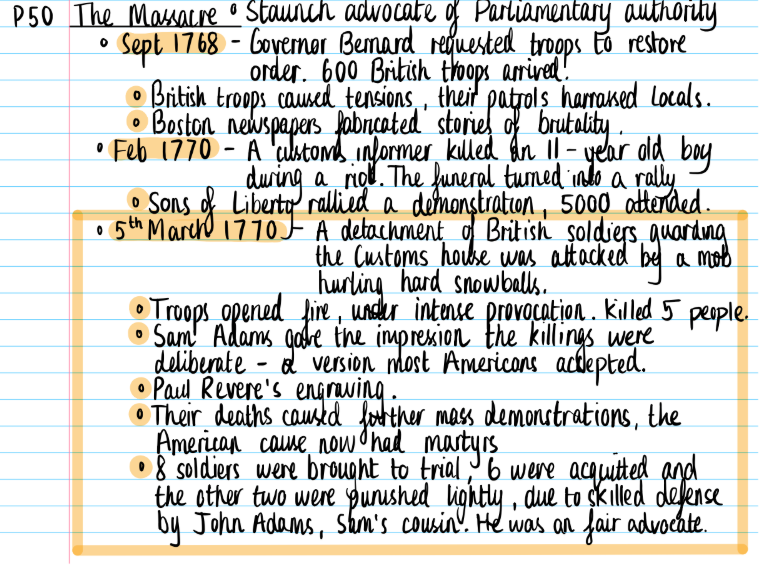 P50 The Massacre • Staunch advocate of Parliamentary authority
• Sept 1768 - Governor Bernard requested troops to restore
order. 600 British troops arrived!
• British troops caused tensions, their patrols harrassed locals.
• Boston newspapers fabricated stories of brutality.
• Feb 1770 - A customs informer killed an 11-year old boy
during a riot. The funeral turned into a rally
• Sons of Liberty rallied a demonstration, 5000 attended.
• 5th March 1770 - A detachment of British soldiers guarding
the Customs house was attacked by a mob
hurling hard snowballs.
• Troops opened fire, under intense provocation. Killed 5 people.
• Sam Adams gave the impression the killings were
deliberate - a version most Americans accepted.
• Paul Revere's engraving.
• Their deaths caused further mass demonstrations, the
American cause now had martyrs
• 8 soldiers were brought to trial, 6 were acquitted and
the other two were punished lightly, due to skilled defense
by John Adams, Sam's cousin. He was an fair advocate.